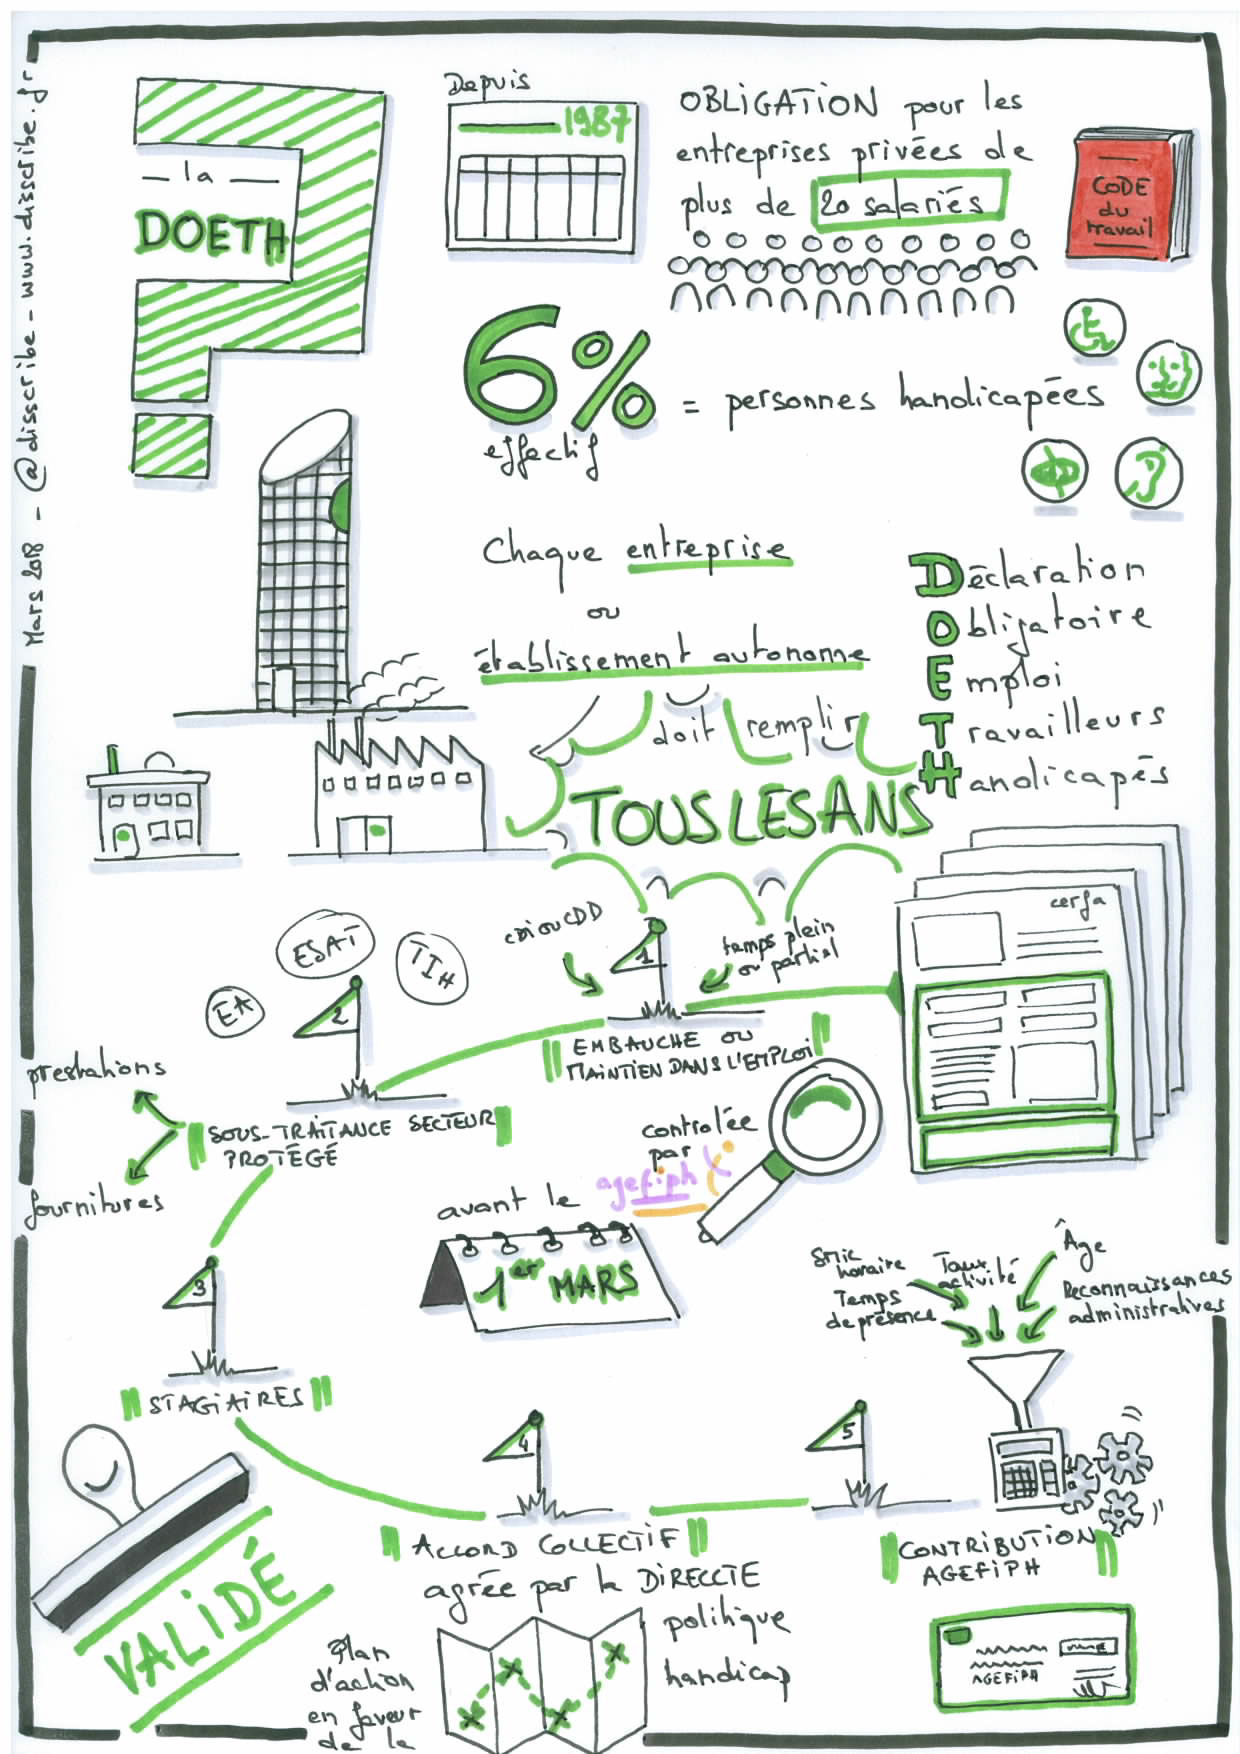 la
DOETH
Depuis
1987
OBLIGATION pour les
entreprises privées de
plus de 20 salariés
CODE
du
travail
6%
effectif
= personnes handicapées
Mars 2018 - @disscribe - www.disscribe.fr
Chaque entreprise
ou
établissement autonome
doit remplir
TOUS LES ANS
Déclaration
Obligatoire
Emploi
Travailleurs
Handicapés
cerfa
CDI ou CDD
1
temps plein
ou partiel
EMBAUCHE OU
MAINTIEN DANS L'EMPLOI
EA
ESAT
TIH
2
prestations
fournitures
SOUS-TRAITANCE SECTEUR
PROTÉGÉ
controlée
par
agefiph
avant le
1er MARS
3
STAGIAIRES
Smic
horaire
Taux
activité
Âge
Temps
de présence
Reconnaissances
administratives
4
ACCORD COLLECTIF
agrée par la DIRECCTE
5
CONTRIBUTION
AGEFIPH
VALIDÉ
Plan
d'action
en faveur
de la
politique
handicap
AGEFIPH